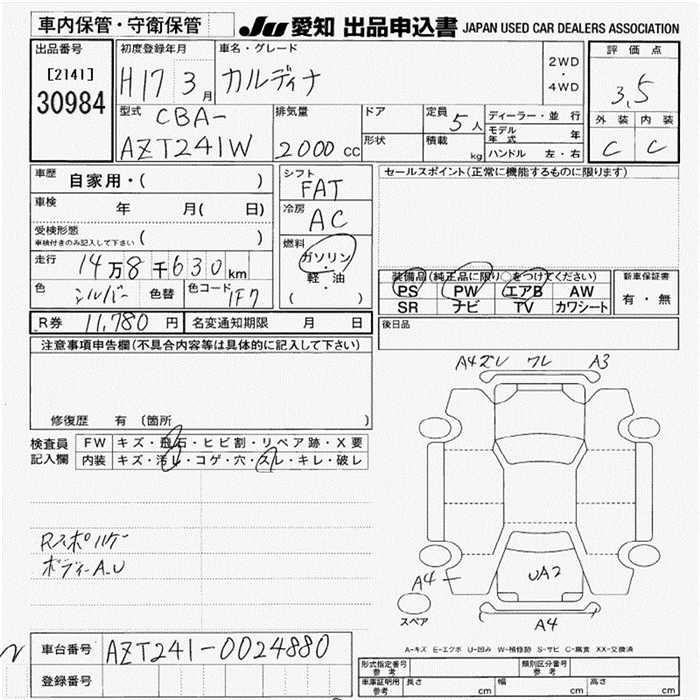 車内保管・守衛保管
JU 愛知 出品申込書 JAPAN USED CAR DEALERS ASSOCIATION
出品番号
[2141]
30984
初度登録年月
H17 3月
車名・グレード
カルディナ
2WD
・
4WD
評価点
3.5
外装 内装
C C
型式
CBA-
AZT241W
排気量
2000cc
ドア
形状
定員
5人
積載
kg
ディーラー・並行
モデル年式 年
ハンドル 左・右
車歴 自家用・( )
車検 年 月( 日)
受検形態
車検付きのみ記入して下さい ( )
走行 14万8千630km
色 シルバー 色替 色コード 1F7
シフト
FAT
冷房
AC
燃料
ガソリン
・
軽・油
( )
セールスポイント(正常に機能するものに限ります)
装備品(純正品に限り○をつけてください)
PS PW エアB AW
SR ナビ TV カワシート
新車保証書
有・無
R券 11,780円 名変通知期限 月 日
後日品
注意事項申告欄(不具合内容等は具体的に記入して下さい)
修復歴 有 (箇所 )
検査員
記入欄
FW キズ・飛石・ヒビ割・リペア跡・X要
内装 キズ・汚レ・コゲ・穴・スレ・キレ・破レ
Rスポハゲ
ボディーA.U
A4ズレ ワレ A3
A4
UA2
A4
スペア
A-キズ E-エクボ U-凹み W-補修跡 S-サビ C-腐食 XX-交換済
車台番号 AZT241-0024880
登録番号
形式指定番号
参考
類別区分番号
参考
車庫証明用
参考
長さ cm 幅 cm 高さ cm